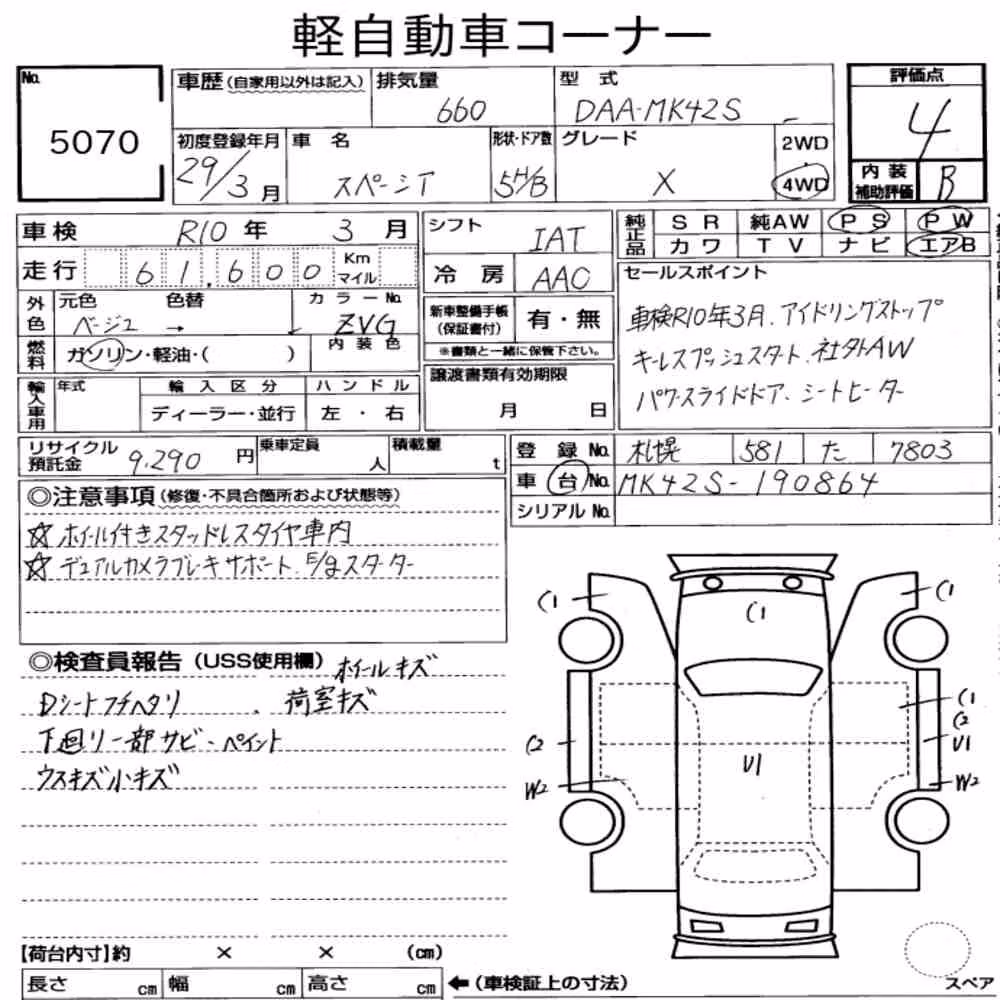 軽自動車コーナー
No. 5070
車歴(自家用以外は記入) 排気量 660 型式 DAA-MK42S
初度登録年月 29/3月 車名 スペーシア 形状・ドア数 5H/B グレード X 2WD 4WD
評価点 4
内装補助評価 B
車検 R10年 3月
走行 61,600 Km マイル
シフト IAT
冷房 AAC
純正品 SR 純AW PS PW
カワ TV ナビ エアB
外色 元色 ベージュ → 色替 カラーNo. ZVG
燃料 ガソリン・軽油・( ) 内装色
新車整備手帳(保証書付) 有・無
※書類と一緒に保管下さい。
セールスポイント
車検R10年3月.アイドリングストップ
キーレスプッシュスタート.社外AW
パワースライドドア.シートヒーター
輸入車用 年式 輸入区分 ハンドル
ディーラー・並行 左・右
譲渡書類有効期限
月 日
リサイクル預託金 9.290円 乗車定員 人 積載量 t
登録No. 札幌 581 た 7803
車台No. MK42S-190864
シリアルNo.
◎注意事項(修復・不具合箇所および状態等)
☆ホイール付きスタッドレスタイヤ車内
☆デュアルカメラブレーキサポート.5/8スターター
◎検査員報告(USS使用欄) ホイールキズ
Dシートフチヘタリ. 荷室キズ
下廻り一部サビ・ペイント
ウスキズ小キズ
C1 C1 C1
C1
C2 C2
U1 U1
W2 W2
【荷台内寸】約 × × (cm)
長さ cm 幅 cm 高さ cm ←(車検証上の寸法)
スペア